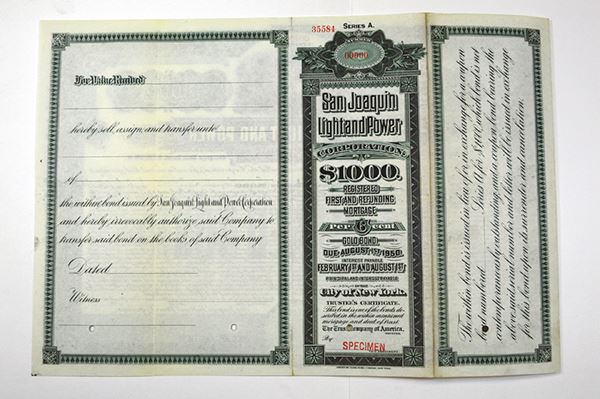 For Value Received
hereby sell, assign, and transfer unto
of
the within bond issued by San Joaquin Light and Power Corporation
and hereby irrevocably authorize said Company to
transfer said bond on the books of said Company
Dated
Witness
35584 SERIES A.
NUMBER
00000
San Joaquin
Light and Power
CORPORATION
$1000.
REGISTERED
FIRST AND REFUNDING
MORTGAGE
Per 6 cent
GOLD BOND
DUE AUGUST 1ST 1950
INTEREST PAYABLE
FEBRUARY 1ST AND AUGUST 1ST
PRINCIPAL AND INTEREST PAYABLE
IN THE
City of New York.
TRUSTEE'S CERTIFICATE.
This bond is one of the bonds de-
scribed in the within mentioned
mortgage and deed of trust.
The Trust Company of America,
By
SPECIMEN
The within bond is issued in lieu of or in exchange for a coupon
bond numbered Series A for $1000, which bond is not
contemporaneously outstanding, and a coupon bond bearing the
above serial number and series will be issued in exchange
for this bond upon its surrender and cancellation.